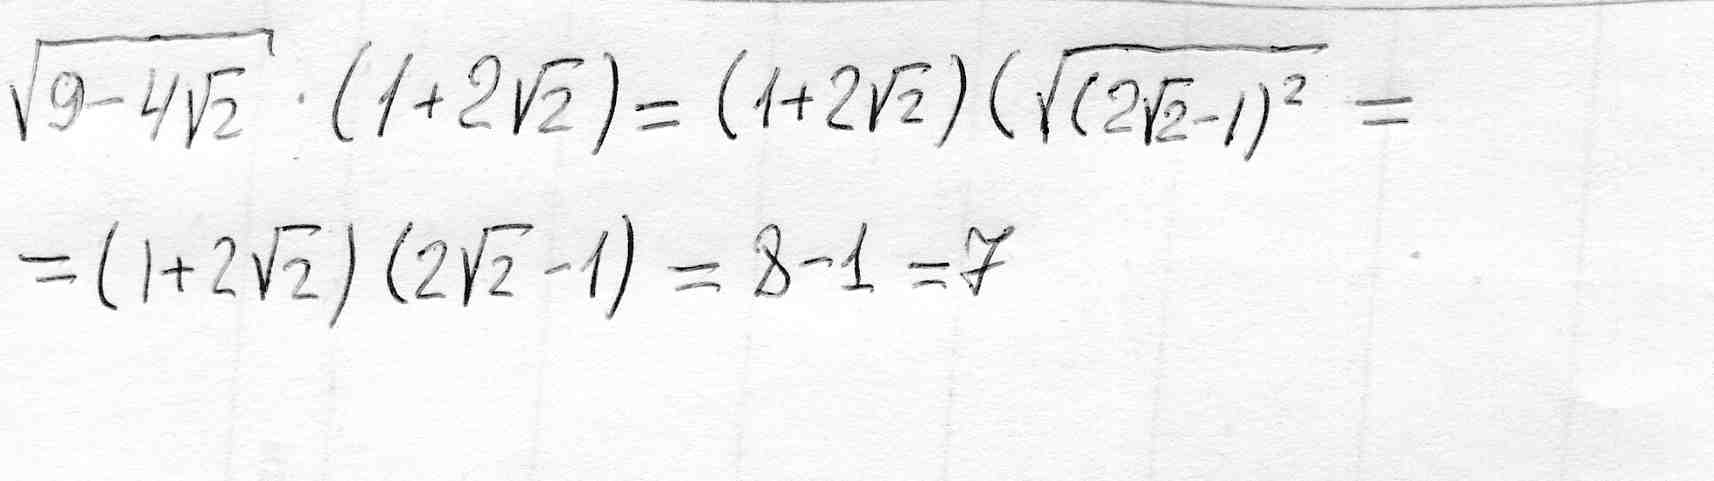 √(9-4√2) · (1+2√2) = (1+2√2)(√((2√2-1)²) =
= (1+2√2)(2√2-1) = 8-1 = 7